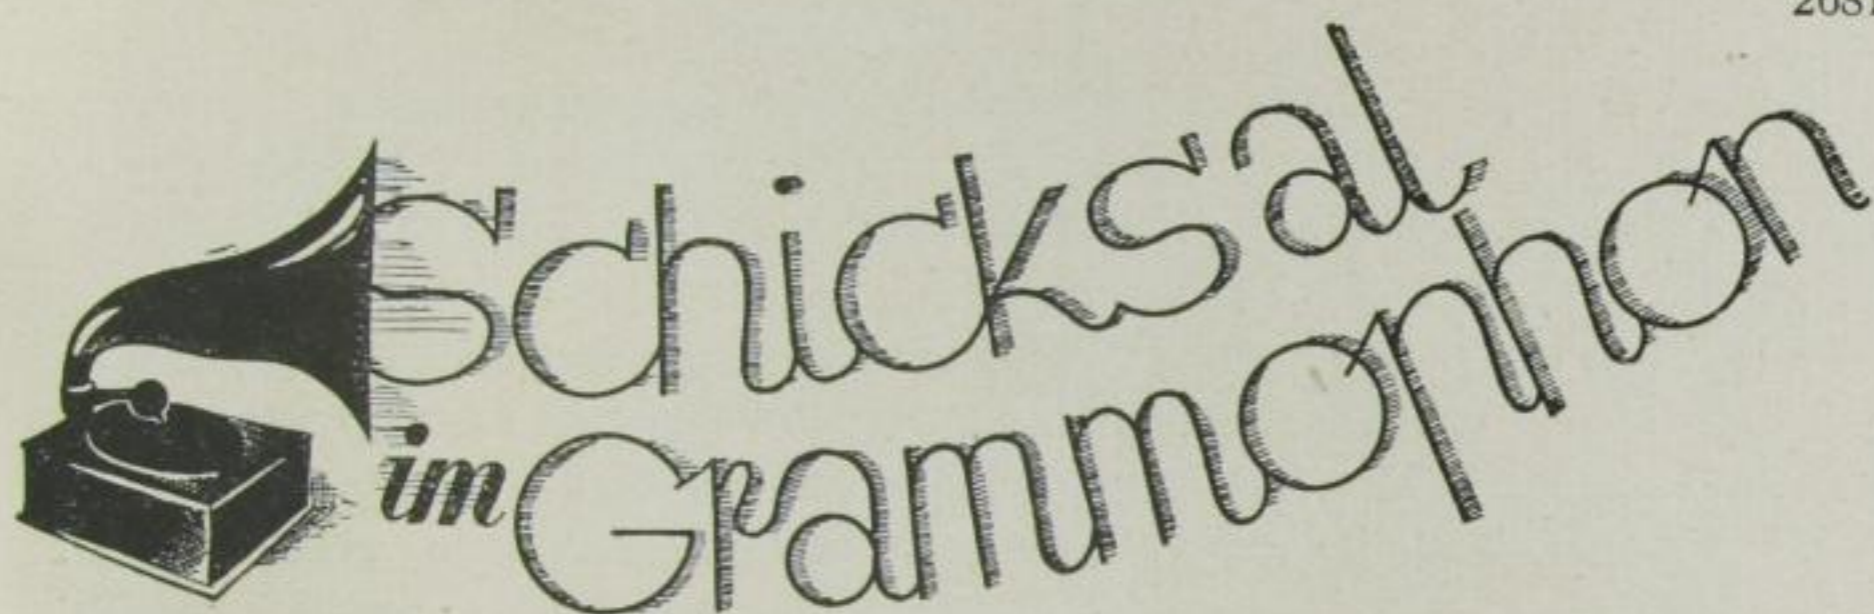 Schicksal
im Grammophon